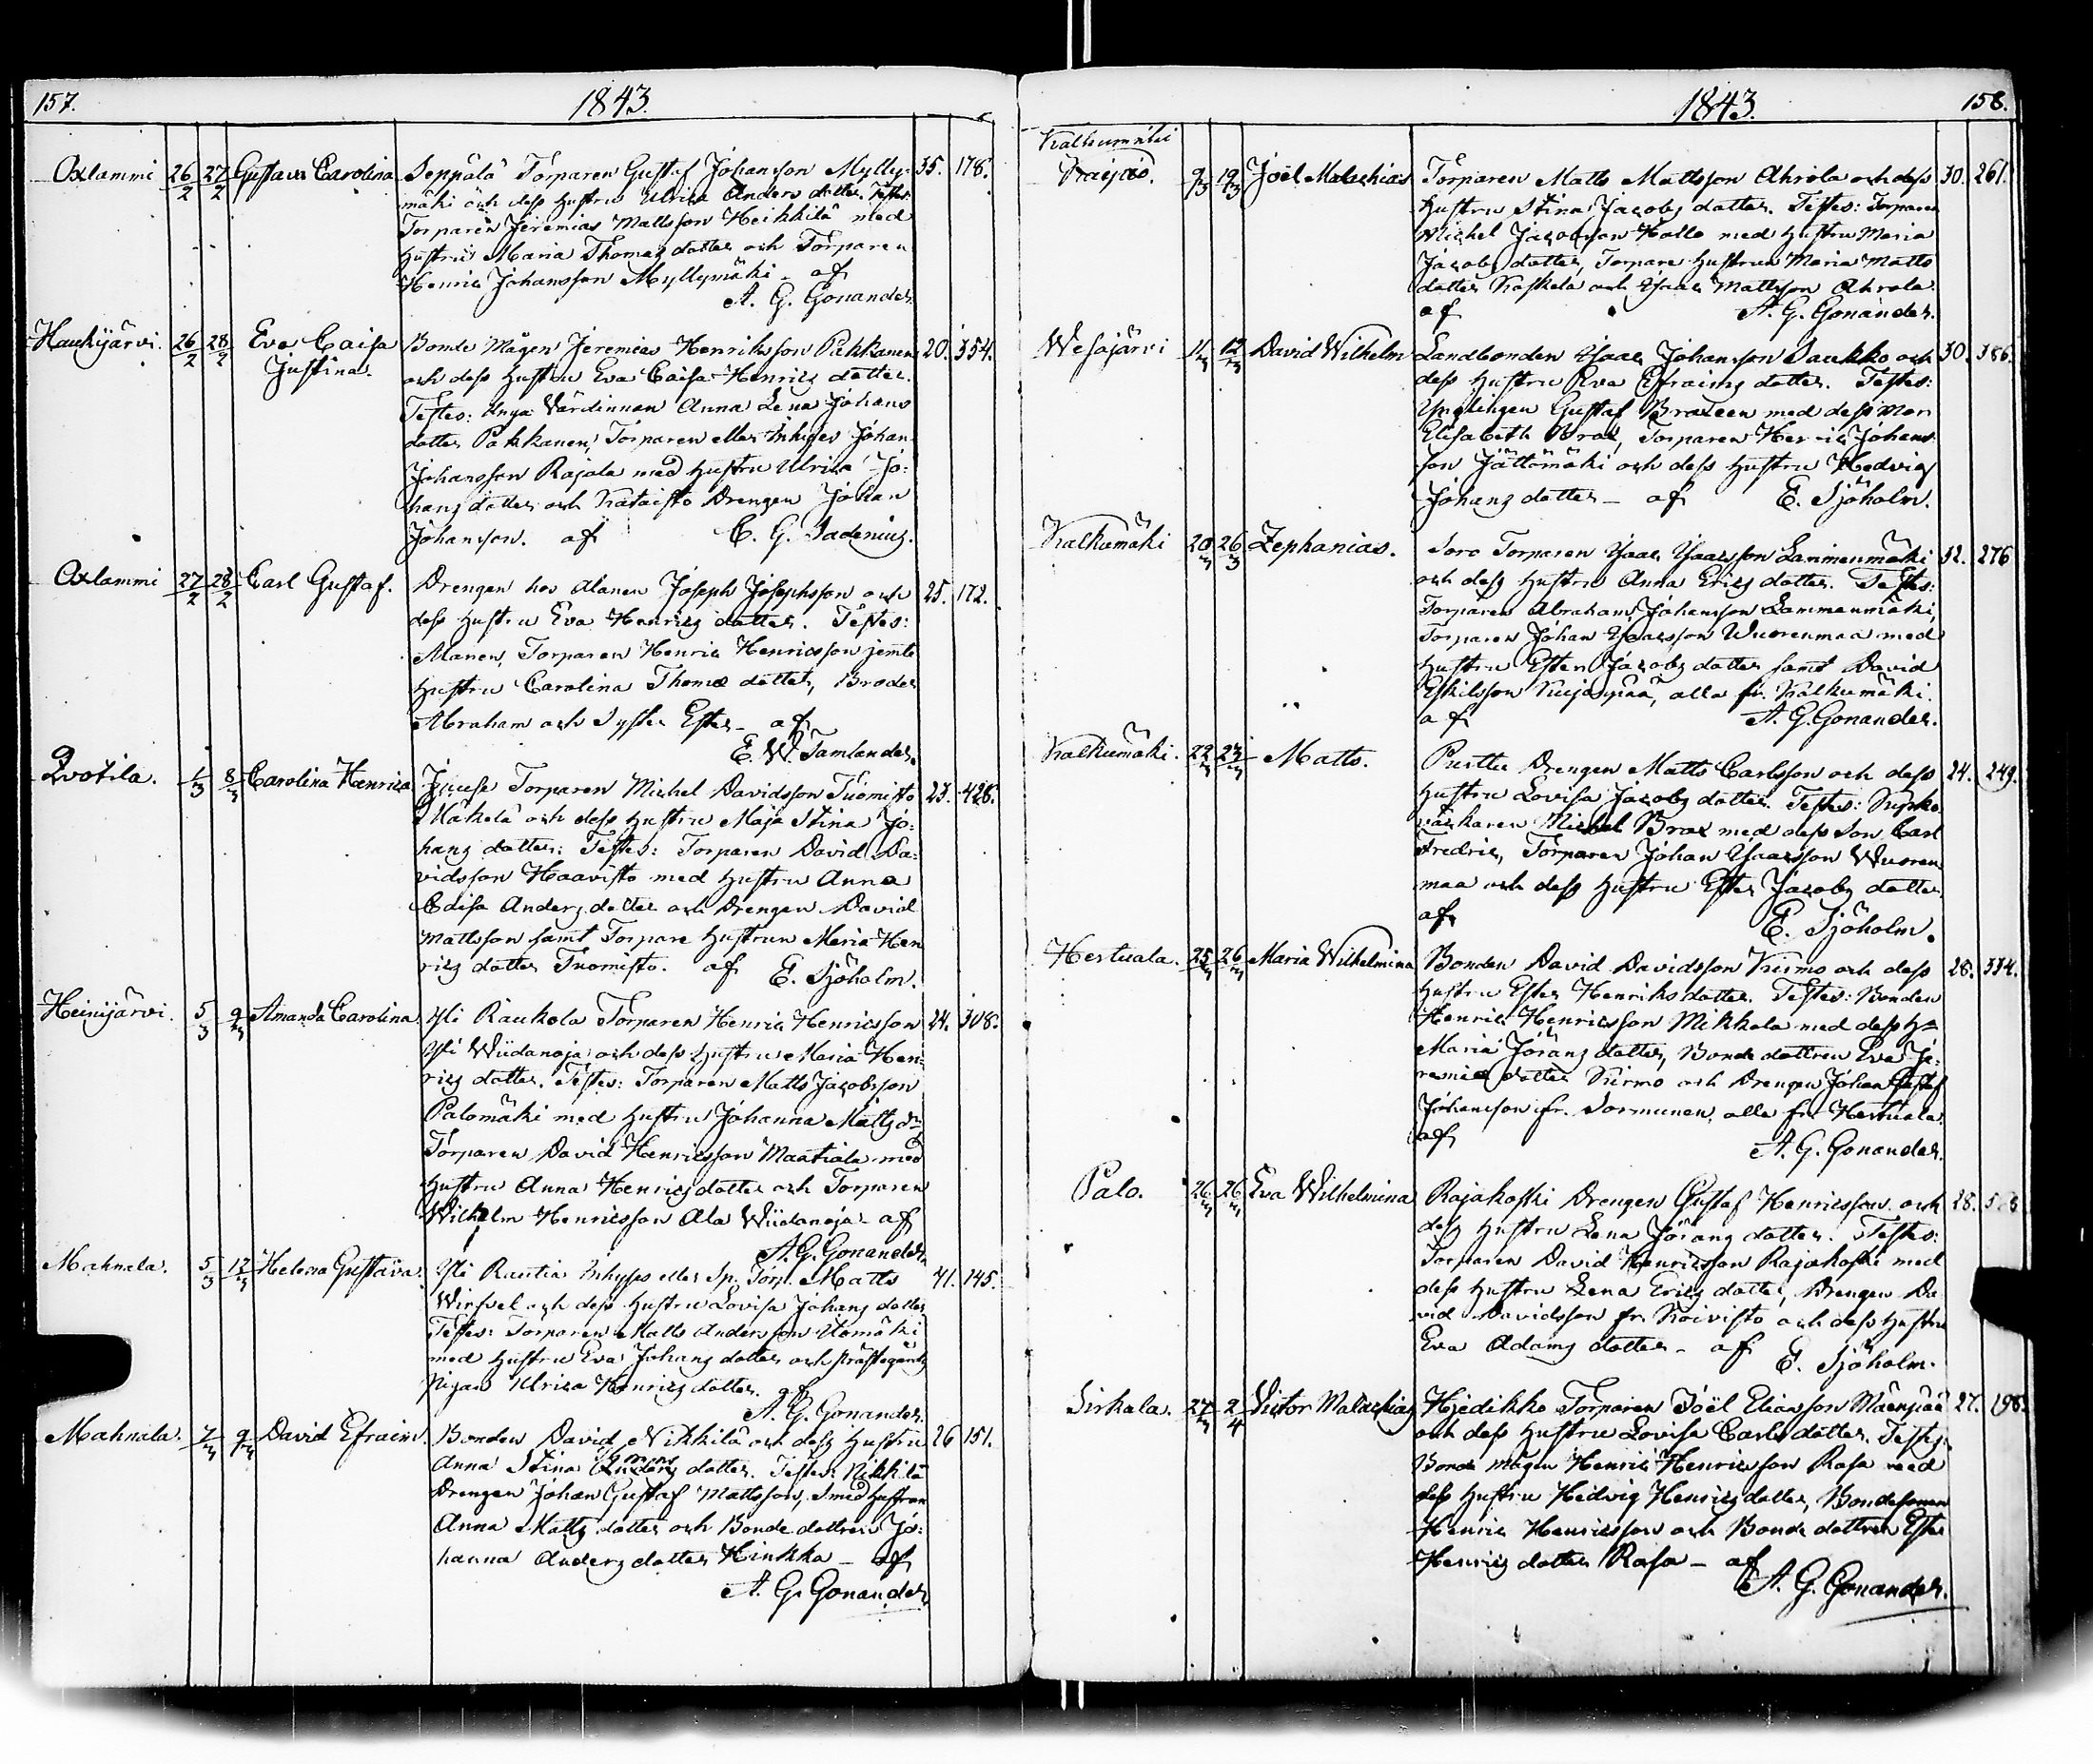 157.
1843.
Oxlammi 26/2 27/2 Gustava Carolina Seppälä Torparen Gustaf Johansson Mylly- 35. 178.
mäki och dess hustru Ulrica Anders dotter. Testes:
Torparen Jeremias Mattsson Heikkilä med
hustru Maria Thomas dotter och Torparen
Henric Johansson Myllymäki - af
A. G. Gonander.
Haukijärvi. 26/2 28/2 Eva Caisa Bonde Mågen Jeremias Henriksson Pakkanen 20. 354.
Justina. och dess hustru Eva Caisa Henrics dotter.
Testes: Unga Värdinnan Anna Lena Johans
dotter Pakkanen, Torparen eller Inhyses Johan
Johansson Rajala med hustru Ulrica Jo:
hans dotter och Kataisto Drengen Johan
Johansson. af C. G. Sadenius.
Oxlammi 27/2 28/2 Carl Gustaf. Drengen hos Alanen Joseph Josephsson och 25. 172.
dess hustru Eva Henrics dotter. Testes:
Alanen, Torparen Henric Henricsson jemte
hustru Carolina Thomæ dotter, Broder
Abraham och Syster Ester - af
E. W. Tamlander.
Qvotila. 1/3 8/3 Carolina Henrica Torparen Michel Davidsson Tuomisto 23. 428.
Mäkelä och dess hustru Maja Stina Jo:
hans dotter: Testes: Torparen David Da:
vidsson Haavisto med hustru Anna
Caisa Anders dotter och Drengen David
Mattsson samt Torpare hustrun Maria Hen
rics dotter Tuomisto. af E. Sjöholm.
Heinijärvi. 5/3 9/3 Amanda Carolina. Yli Raukola Torparen Henric Henricsson 24. 308.
Yli Wiidanoja och dess hustru Maria Hen:
rics dotter. Testes: Torparen Matts Jacobsson
Palomäki med hustru Johanna Matts dr
Torparen David Henricsson Maatiala med
hustru Anna Henrics dotter och Torparen
Wilhelm Henricsson Ala Wiidanoja - af
A. G. Gonander.
Mahnala. 5/3 12/3 Helena Gustava. Yli Rautia Inhyses eller Sp. Torp. Matts 41. 145.
och dess hustru Lovisa Johans dotter
Testes: Torparen Matts Andersson
med hustru Eva Johans dotter och Prästegårds
Pigan Ulrica Henrics dotter. af
A. G. Gonander.
Mahnala. 7/3 9/3 David Efraim. Bonden David Nikkilä och dess hustru 26 151.
Anna Stina dotter. Testes: Nikkilä
Drengen Johan Gustaf Mattsson, Smed hustrun
Anna Matts dotter och Bonde dottren Jo:
hanna Anders dotter Hinkka - af
A. G. Gonander
1843.
158.
Kalkunmäki
9/3 19/3 Joël Malachias Torparen Matts Mattsson Ahrola och dess 30. 261.
hustru Stina Jacobs dotter. Testes: Torparen
Michel Jacobsson Hallo med hustru Maria
Jacobs dotter, Torpare hustrun Maria Matts
dotter Koskela och Isaac Mattsson Ahrola.
af A. G. Gonander.
Wesajärvi 11/3 12/3 David Wilhelm Landbonden Isaac Johansson Saukko och 30. 386.
dess hustru Eva Efraims dotter. Testes:
Ynglingen Gustaf Braxeen med dess mor
Elisabeth Brax, Torparen Henric Johans
son Jättömäki och dess hustru Hedvig
Johans dotter - af E. Sjöholm.
Kalkumäki 20/3 26/3 Zephanias. Soro Torparen Isaac Isacsson Lammenmäki 32. 276
och dess hustru Anna Erics dotter. Testes:
Torparen Abraham Johansson Lammenmäki,
Torparen Johan Isacsson Wuorenmaa med
hustru Ester Jacobs dotter samt David
Eskilsson Kujanpää, alla fr. Kalkumäki.
af A. G. Gonander.
Kalkumäki. 22/3 23/3 Matts. Drengen Matts Carlsson och dess 24. 249.
hustru Lovisa Jacobs dotter. Testes: Kyrko
väcktaren Michel Brax med dess son Carl
Fredric, Torparen Johan Isacsson Wuoren
maa och dess hustru Ester Jacobs dotter.
af E. Sjöholm.
Hertuala. 25/3 26/3 Maria Wilhelmina Bonden David Davidsson Kirmo och dess 28. 334.
hustru Ester Henriks dotter. Testes: Bonden
Henric Henricsson Mikkola med dess h:
Maria Jörans dotter, Bonde dottren Eva Je:
remiæ dotter Kirmo och Drengen Johan Gustaf
Johansson fr. Sormunen, alla fr. Hertuala.
af A. G. Gonander.
Palo. 26/3 26/3 Eva Wilhelmina Rajakoski Drengen Gustaf Henricsson och 28.
dess hustru Lena Jörans dotter. Testes:
Torparen David Henricsson Rajakoski med
dess hustru Lena Erics dotter, Drengen Da
vid Davidsson fr. Koivisto och dess hustru
Eva Adams dotter - af E. Sjöholm.
Sirkala. 27/3 2/4 Victor Malachias Hjedikko Torparen Joël Eliasson Mäenpää 27. 198.
och dess hustru Lovisa Carls dotter. Testes:
Bonde mågen Henric Henricsson Rasa med
dess hustru Hedvig Henrics dotter, Bondesonen
Henric Henricsson och Bonde dottren Ester
Henrics dotter Rasa - af
A. G. Gonander.